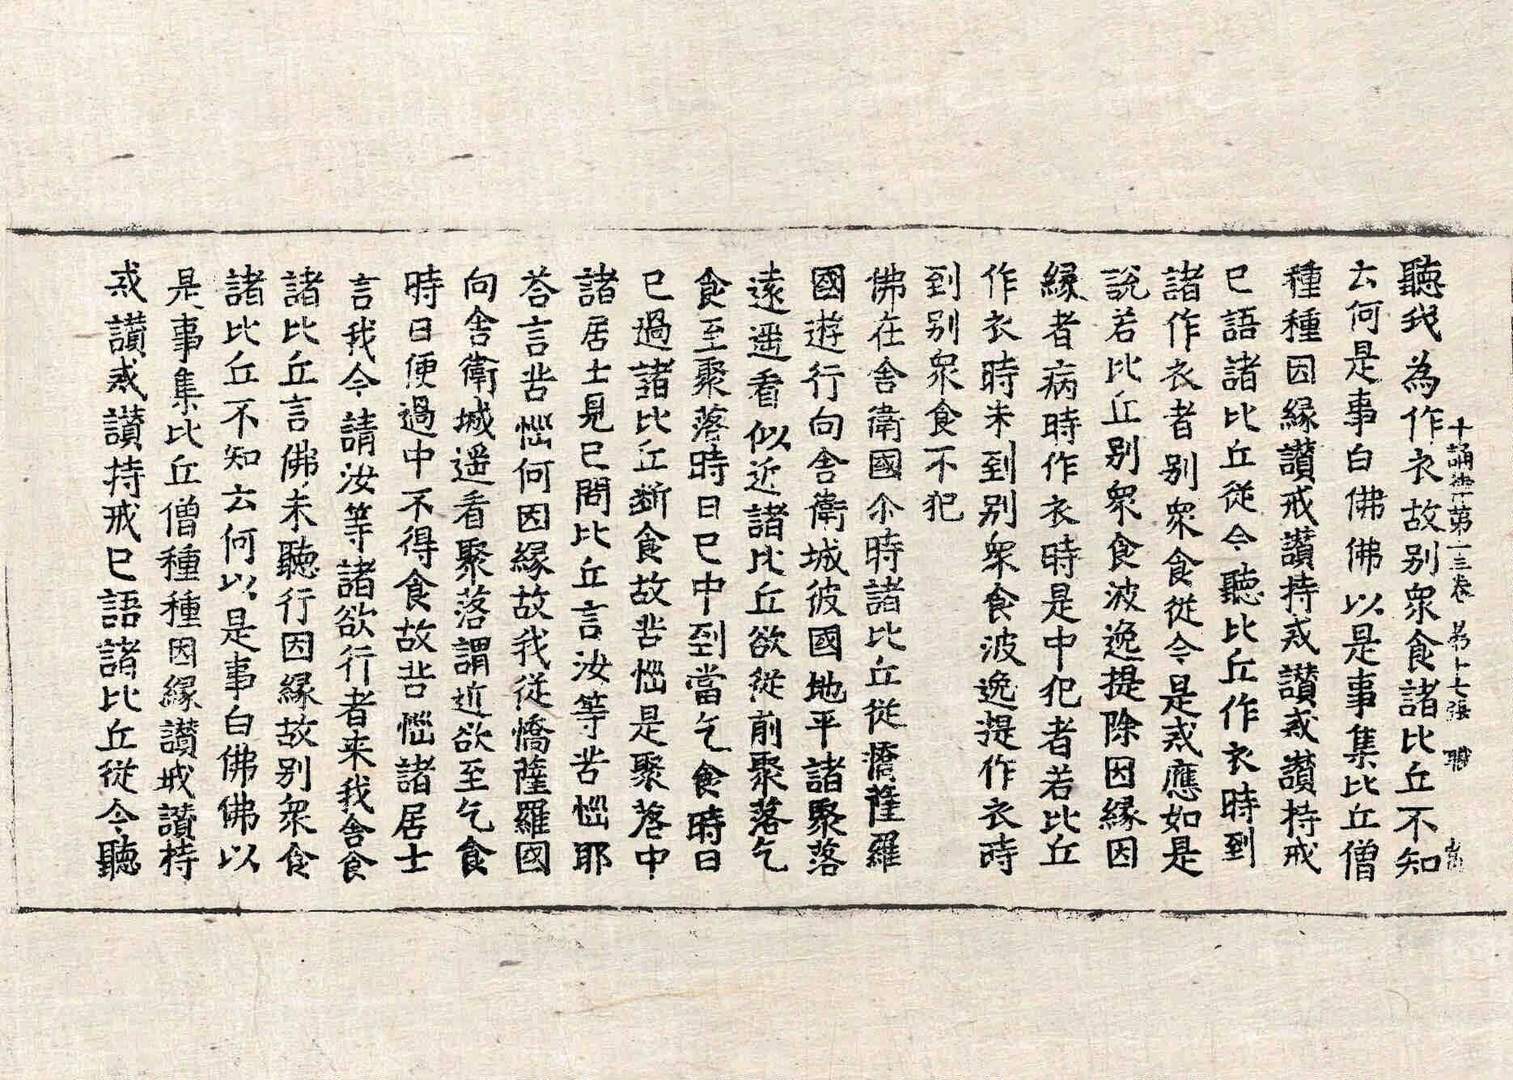 十誦律第十三卷 第十七張 職
聽我為作衣故别衆食諸比丘不知
云何是事白佛佛以是事集比丘僧
種種因縁讃戒讃持戒讃戒讃持戒
已語諸比丘従今聽比丘作衣時到
諸作衣者别衆食従今是戒應如是
說若比丘别衆食波逸提除因縁因
縁者病時作衣時是中犯者若比丘
作衣時未到别衆食波逸提作衣時
到别衆食不犯
佛在舎衛國尒時諸比丘従憍薩羅
國遊行向舎衛城彼國地平諸聚落
遠遥看似近諸比丘欲従前聚落乞
食至聚落時日已中到當乞食時日
已過諸比丘断食故苦惱是聚落中
諸居士見已問比丘言汝等苦惱耶
荅言苦惱何因縁故我従憍薩羅國
向舎衛城遥看聚落謂近欲至乞食
時日便過中不得食故苦惱諸居士
言我今請汝等諸欲行者来我舎食
諸比丘言佛未聽行因縁故别衆食
諸比丘不知云何以是事白佛佛以
是事集比丘僧種種因縁讃戒讃持
戒讃戒讃持戒已語諸比丘従今聽